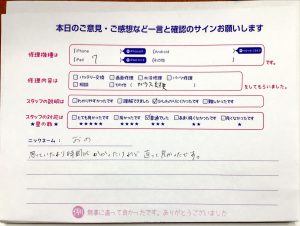 本日のご意見・ご感想など一言と確認のサインお願いします
修理機種は
iPhone
Android
iPad
7
その他
修理内容は
バッテリー交換
画面修理
水没修理
パーツ修理
相談
その他
ガラス
をしてもらいました。
スタッフの説明は
わかりやすかったです
理解できました
少しわかりにくかったです
難しかったです
スタッフの対応は
とても良かったです
良かったです
普通でした
あまり良くなかったです
良くなかったです
★星の数★
★★★★★
★★★★
★★★
★★
★
ニックネーム：
おの
思っていたより時間がかかったけど 直って良かったです。
無事に直って良かったです。ありがとうございました